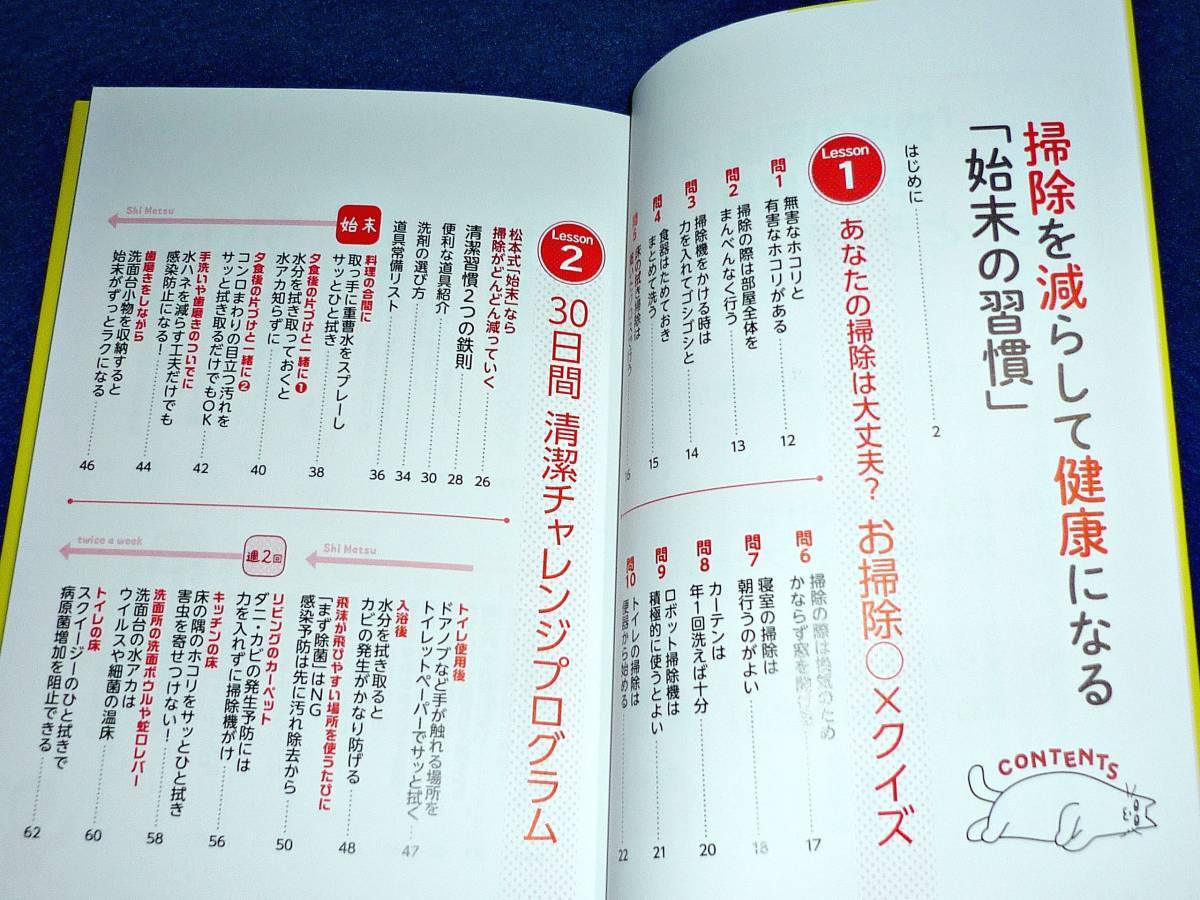 掃除を減らして健康になる
「始末の習慣」
CONTENTS
はじめに
2
Lesson
1
あなたの掃除は大丈夫？ お掃除○×クイズ
問1
無害なホコリと
有害なホコリがある
12
問2
掃除の際は部屋全体を
まんべんなく行う
13
問3
掃除機をかける時は
力を入れてゴシゴシと
14
問4
食器はためておき
まとめて洗う
15
問5
床の拭き掃除は
問6
掃除の際は換気のため
かならず窓を開ける
17
問7
寝室の掃除は
朝行うのがよい
18
問8
カーテンは
年1回洗えば十分
20
問9
ロボット掃除機は
積極的に使うとよい
21
問10
トイレの掃除は
便器から始める
22
Lesson
2
30日間 清潔チャレンジプログラム
松本式「始末」なら
掃除がどんどん減っていく
26
清潔習慣2つの鉄則
28
便利な道具紹介
30
洗剤の選び方
34
道具常備リスト
36
始末
Shi Matsu
料理の合間に
取っ手に重曹水をスプレーし
サッとひと拭き
38
夕食後の片づけと一緒に❶
水分を拭き取っておくと
水アカ知らずに
40
夕食後の片づけと一緒に❷
コンロまわりの目立つ汚れを
サッと拭き取るだけでもOK
42
手洗いや歯磨きのついでに
水ハネを減らす工夫だけでも
感染防止になる！
44
歯磨きをしながら
洗面台小物を収納すると
始末がずっとラクになる
46
Shi Matsu
トイレ使用後
ドアノブなど手が触れる場所を
トイレットペーパーでサッと拭く
47
入浴後
水分を拭き取ると
カビの発生がかなり防げる
48
飛沫が飛びやすい場所を使うたびに
「まず除菌」はNG
感染予防は先に汚れ除去から
50
週2回
twice a week
リビングのカーペット
ダニ・カビの発生予防には
力を入れずに掃除機がけ
56
キッチンの床
床の隅のホコリをサッとひと拭き
害虫を寄せつけない！
58
洗面所の洗面ボウルや蛇口レバー
洗面台の水アカは
ウイルスや細菌の温床
60
トイレの床
スクイージーのひと拭きで
病原菌増加を阻止できる
62